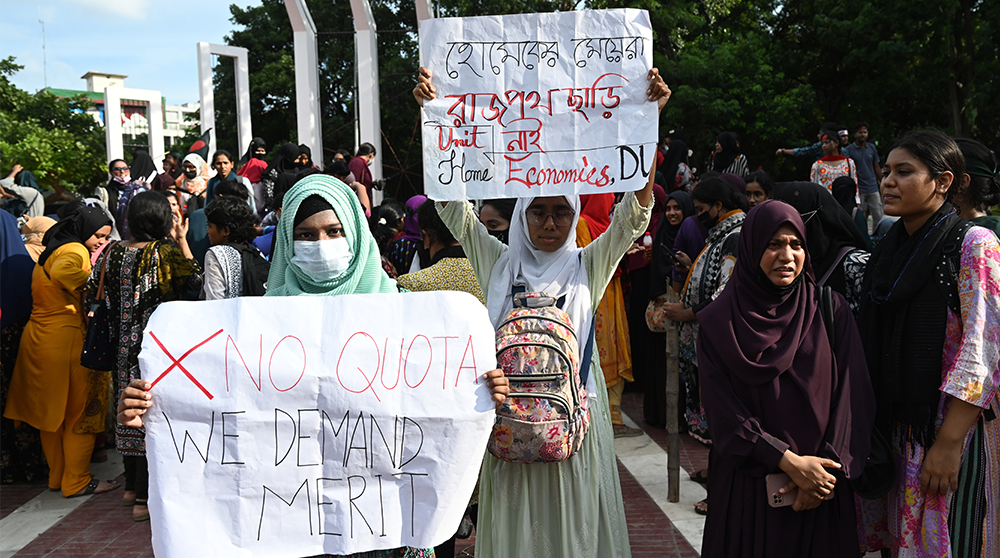 হোমেকের মেয়েরা
রাজপথ ছাড়ি
Unit নাই
Home Economics, DU
X NO QUOTA
WE DEMAND
MERIT